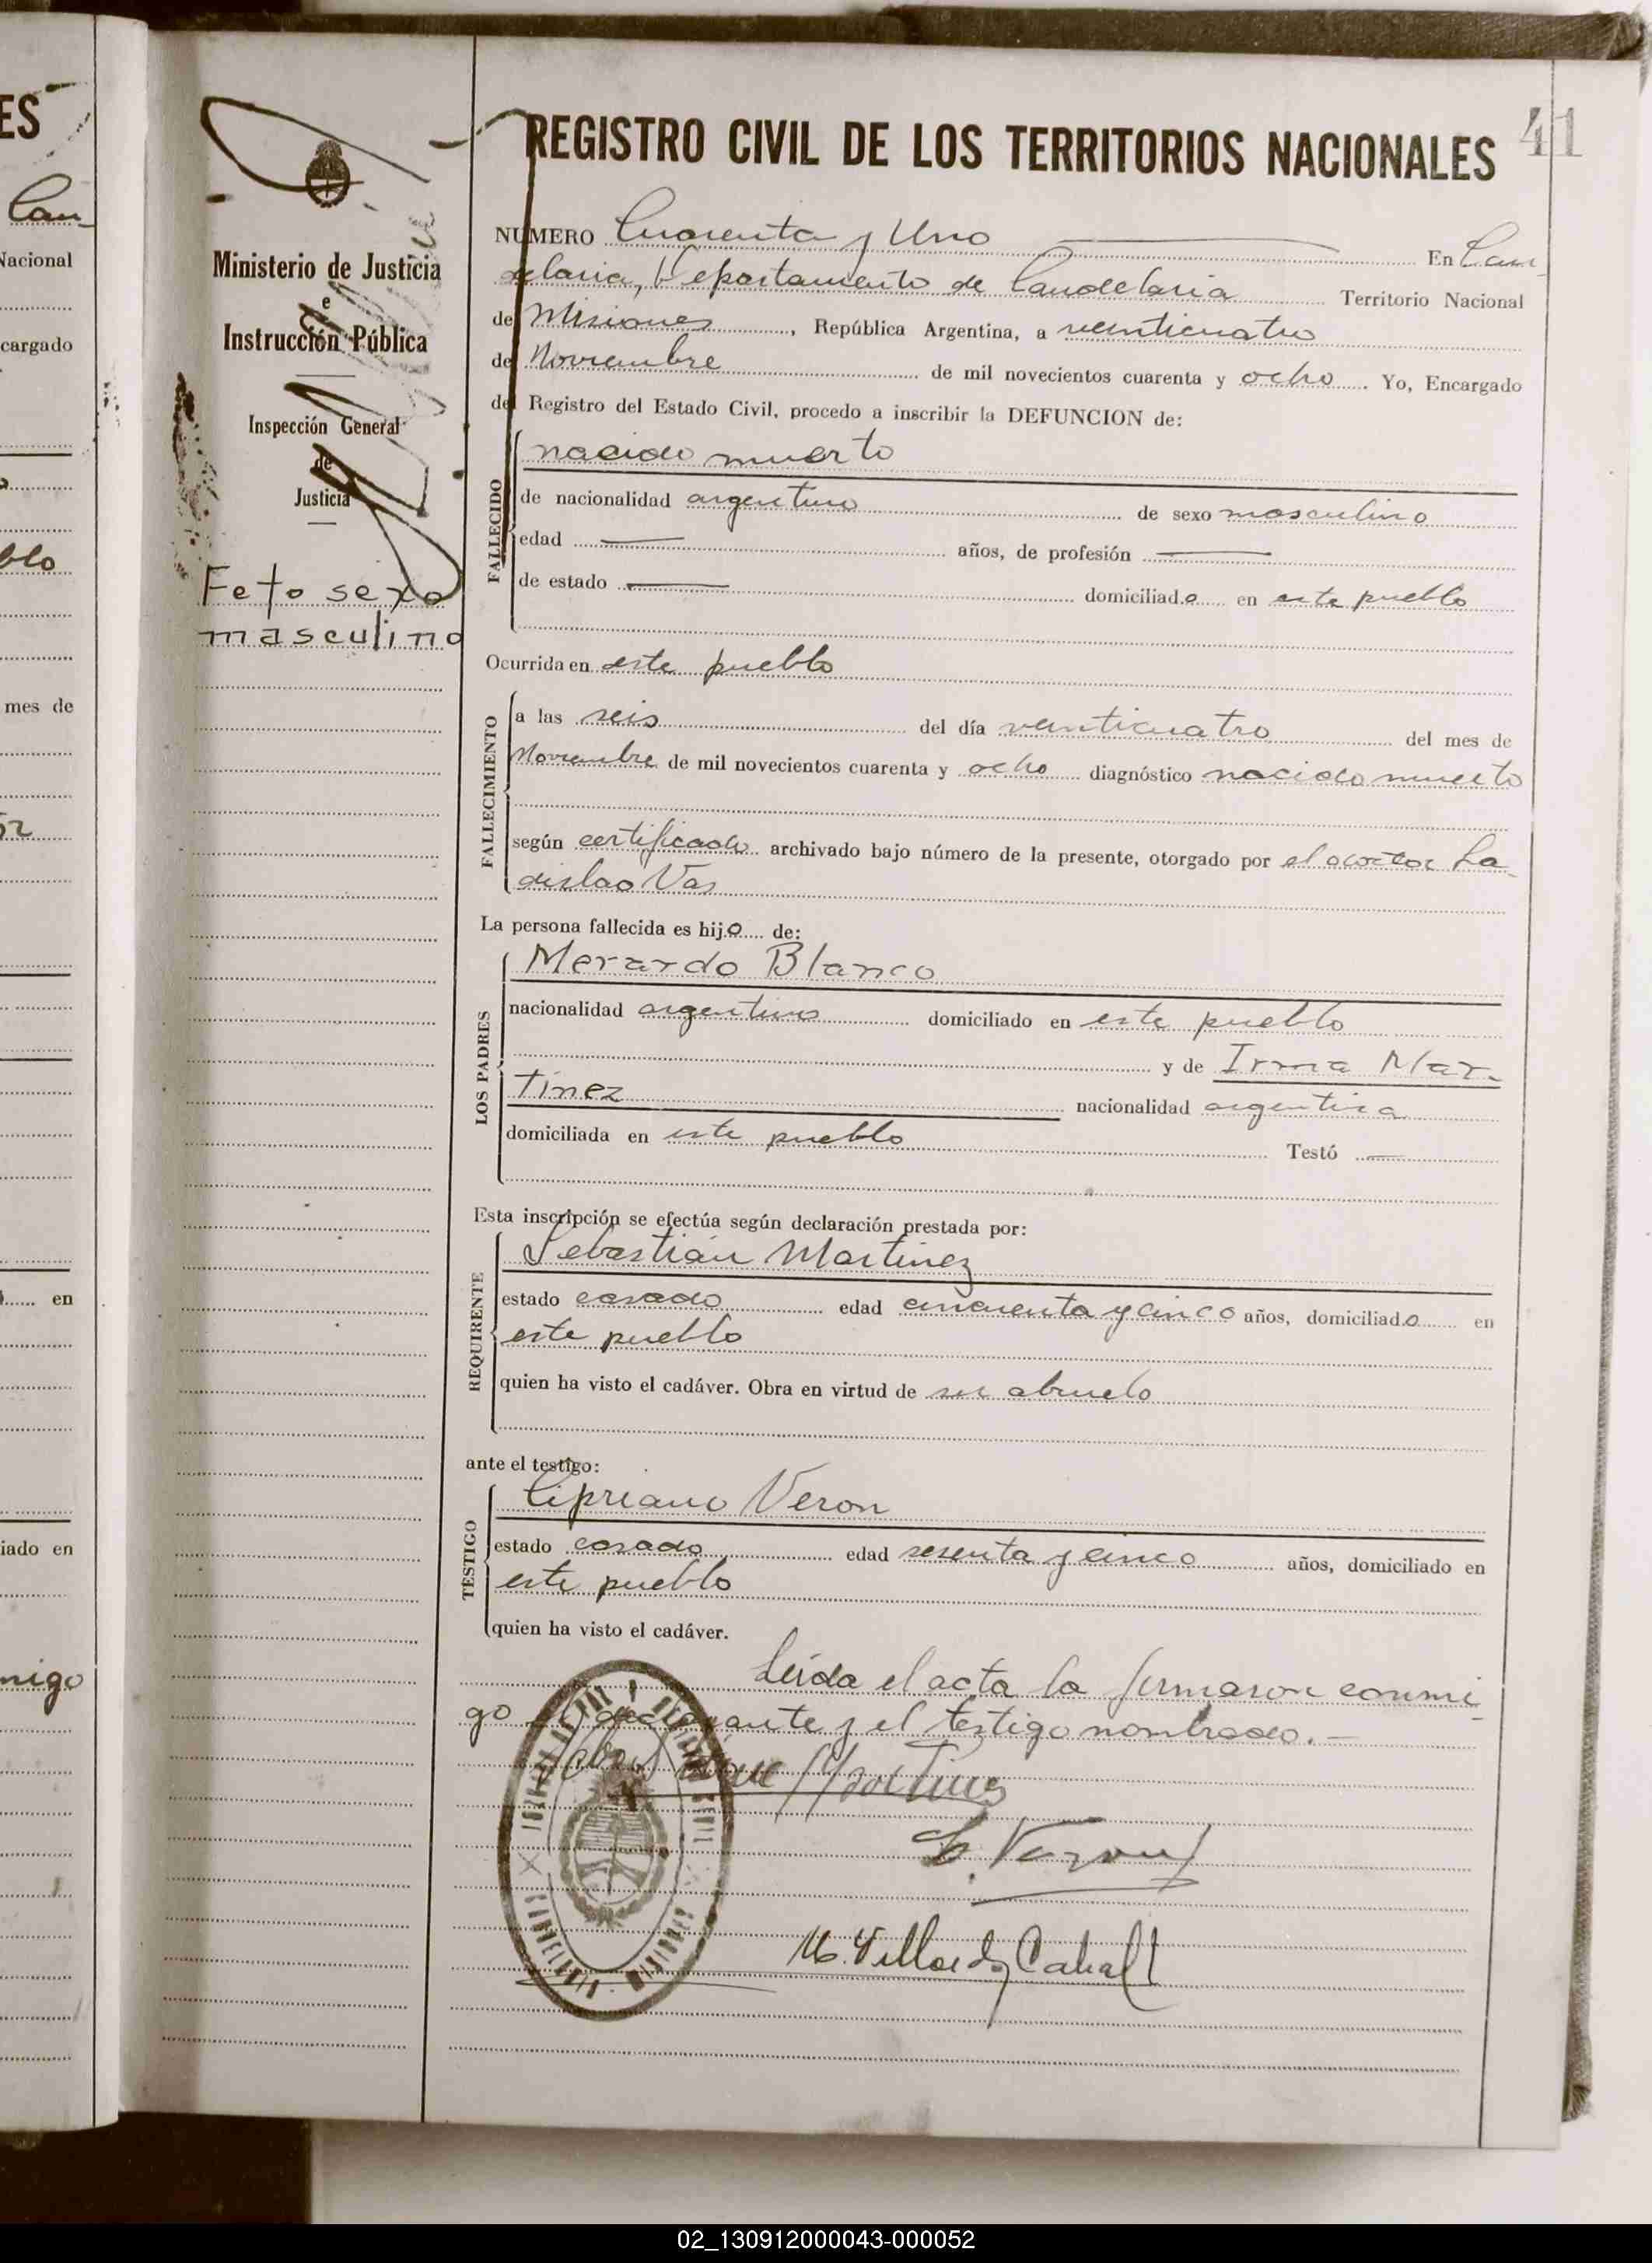 ES
Can-
Nacional
cargado
blo
mes de
en
iado en
migo
41
REGISTRO CIVIL DE LOS TERRITORIOS NACIONALES
Ministerio de Justicia
e
Instrucción Pública
Inspección General
de
Justicia
Feto sexo
masculino
NUMERO Cuarenta y Uno En Can-
delaria, Departamento de Candelaria Territorio Nacional
de Misiones, República Argentina, a veinticuatro
de Noviembre de mil novecientos cuarenta y ocho. Yo, Encargado
del Registro del Estado Civil, procedo a inscribir la DEFUNCION de:
FALLECIDO
nacido muerto
de nacionalidad argentino de sexo masculino
edad años, de profesión
de estado domiciliado en este pueblo
Ocurrida en este pueblo
FALLECIMIENTO
a las seis del día veinticuatro del mes de
Noviembre de mil novecientos cuarenta y ocho diagnóstico nacido muerto
según certificado archivado bajo número de la presente, otorgado por el doctor La-
dislao Vas
La persona fallecida es hijo de:
LOS PADRES
Merardo Blanco
nacionalidad argentino domiciliado en este pueblo
y de Irma Mar-
tinez nacionalidad argentina
domiciliada en este pueblo Testó
Esta inscripción se efectúa según declaración prestada por:
REQUIRENTE
Sebastián Martinez
estado casado edad cincuenta y cinco años, domiciliado en
este pueblo
quien ha visto el cadáver. Obra en virtud de su abuelo
ante el testigo:
TESTIGO
Cipriano Veron
estado casado edad sesenta y cinco años, domiciliado en
este pueblo
quien ha visto el cadáver.
Leída el acta la firmaron conmi-
go el declarante y el testigo nombrado.-
Martinez
CANDELARIA MISIONES
02_130912000043-000052